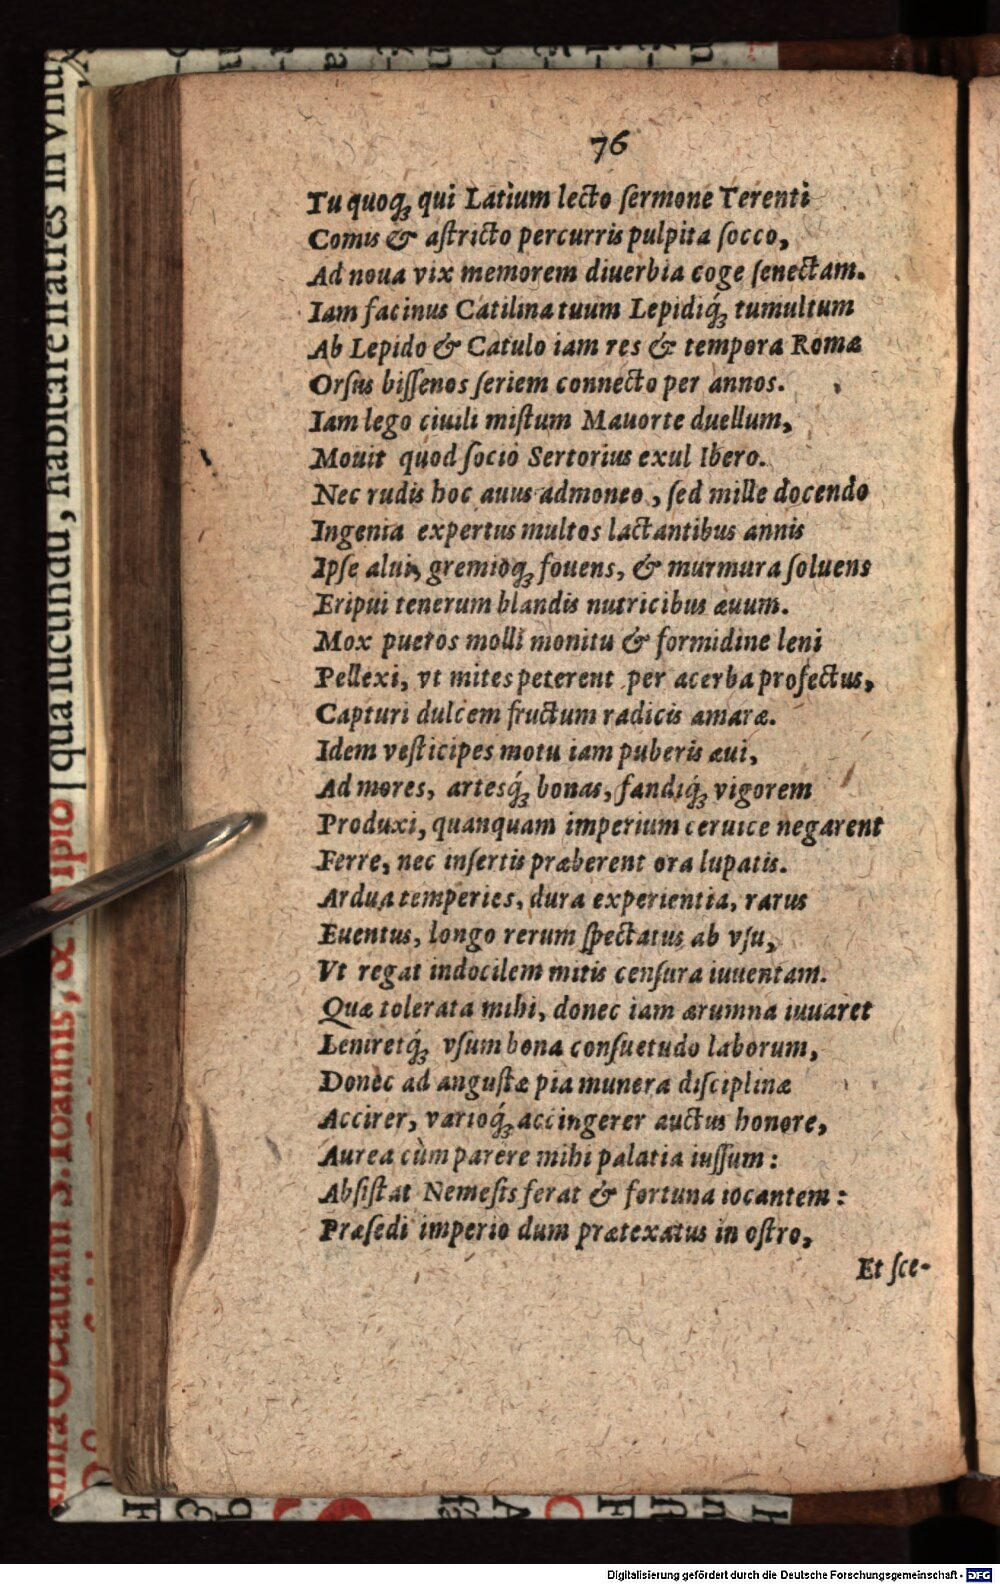 76
Tu quoq; qui Latium lecto ſermone Terenti
Comis & aſtricto percurris pulpita ſocco,
Ad noua vix memorem diuerbia coge ſenectam.
Iam facinus Catilina tuum Lepidiq́; tumultum
Ab Lepido & Catulo iam res & tempora Romæ
Orſus biſſenos ſeriem connecto per annos.
Iam lego ciuili miſtum Mauorte duellum,
Mouit quod ſocio Sertorius exul Ibero.
Nec rudis hoc auus admoneo, ſed mille docendo
Ingenia expertus multos lactantibus annis
Ipſe alui, gremioq; fouens, & murmura ſoluens
Eripui tenerum blandis nutricibus æuum.
Mox pueros molli monitu & formidine leni
Pellexi, vt mites peterent per acerba profectus,
Capturi dulcem fructum radicis amaræ.
Idem veſticipes motu iam puberis æui,
Ad mores, artesq́; bonas, fandiq́; vigorem
Produxi, quanquam imperium ceruice negarent
Ferre, nec inſertis præberent ora lupatis.
Ardua temperies, dura experientia, rarus
Euentus, longo rerum ſpectatus ab vſu,
Vt regat indocilem mitis cenſura iuuentam.
Quæ tolerata mihi, donec iam ærumna iuuaret
Leniretq́; vſum bona conſuetudo laborum,
Donec ad anguſtæ pia munera diſciplinæ
Accirer, varioq́; accingerer auctus honore,
Aurea cùm parere mihi palatia iuſſum:
Abſiſtat Nemeſis ferat & fortuna iocantem:
Præſedi imperio dum prætexatus in oſtro,
Et ſce-
qua iucundu, habitare fratres in vnu
S. Ioannis, &
Digitalisierung gefördert durch die Deutsche Forschungsgemeinschaft - DFG